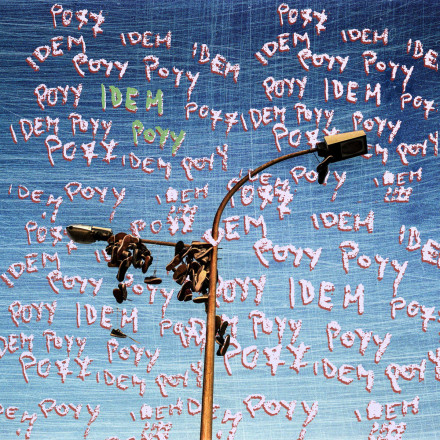 POYY POYY
IDEM IDEM IDEM IDEM IDEM
POYY POYY POYY POYY
POYY IDEM POYY IDEM
IDEM POYY POYY POYY IDEM POYY
POYY IDEM POYY POYY POYY
IDEM POYY IDEM POYY IDEM
POYY POYY IDEM IDEM IDEM
IDEM POYY POYY
POYY POYY IDEM
POYY IDEM POYY POYY POYY
IDEM POYY IDEM POYY
POYY IDEM POYY POYY IDEM POYY
POYY IDEM POYY IDEM